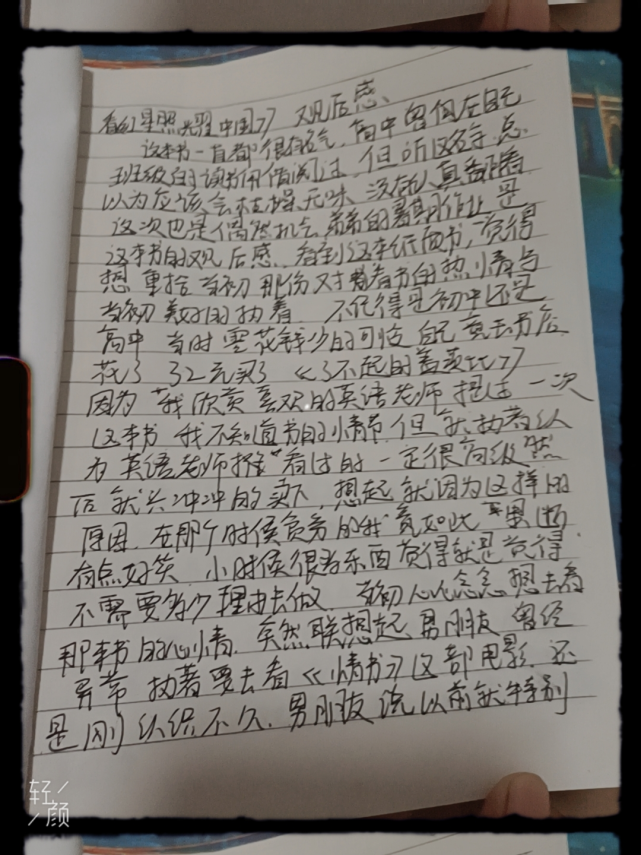 看《红星照耀中国》 观后感
该本书一直都很有名气，高中曾何在自己
班级的读书角借阅过，但听这名字，总
以为应该会枯燥无味，没有认真翻看
这次也是偶然机会，弟弟的暑期作业是
这本书的观后感，看到这本纸质书，觉得
想重拾当初那份对看书的热情与
当初美好的执着，不记得是初中还是
高中 当时零花钱少的可怜 自己竟去书店
花了32元买了《了不起的盖茨比》
因为“我欣赏喜欢的英语老师提过一次
这本书 我不知道书的情节，但就执着认
为英语老师推 看过的一定很高级”然
后就兴冲冲的买下，想起就因为这样的
原因，在那个时候负劳的我“竟如此”果断
有点好笑，小时侯很多东西觉得就是觉得
不需要多少理由去做，当初心心念念想去看
那本书的心情，突然联想起男朋友曾经
异常执著要去看《情书》这部电影，还
是刚认识不久，男朋友说以前就特别
轻颜